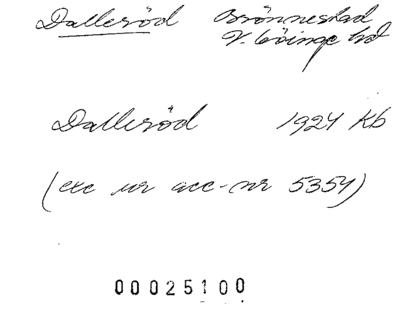 Dalleröd Brönnestad
V. Göinge hd
Dalleröd 1924 Kb
(exc ur acc-nr 5354)
00025100